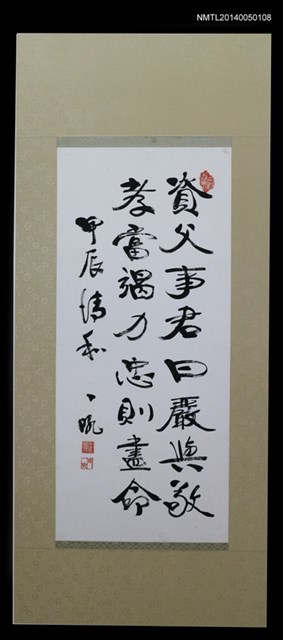 NMTL20140050108
資父事君曰嚴與敬
孝當竭力忠則盡命
甲辰清和